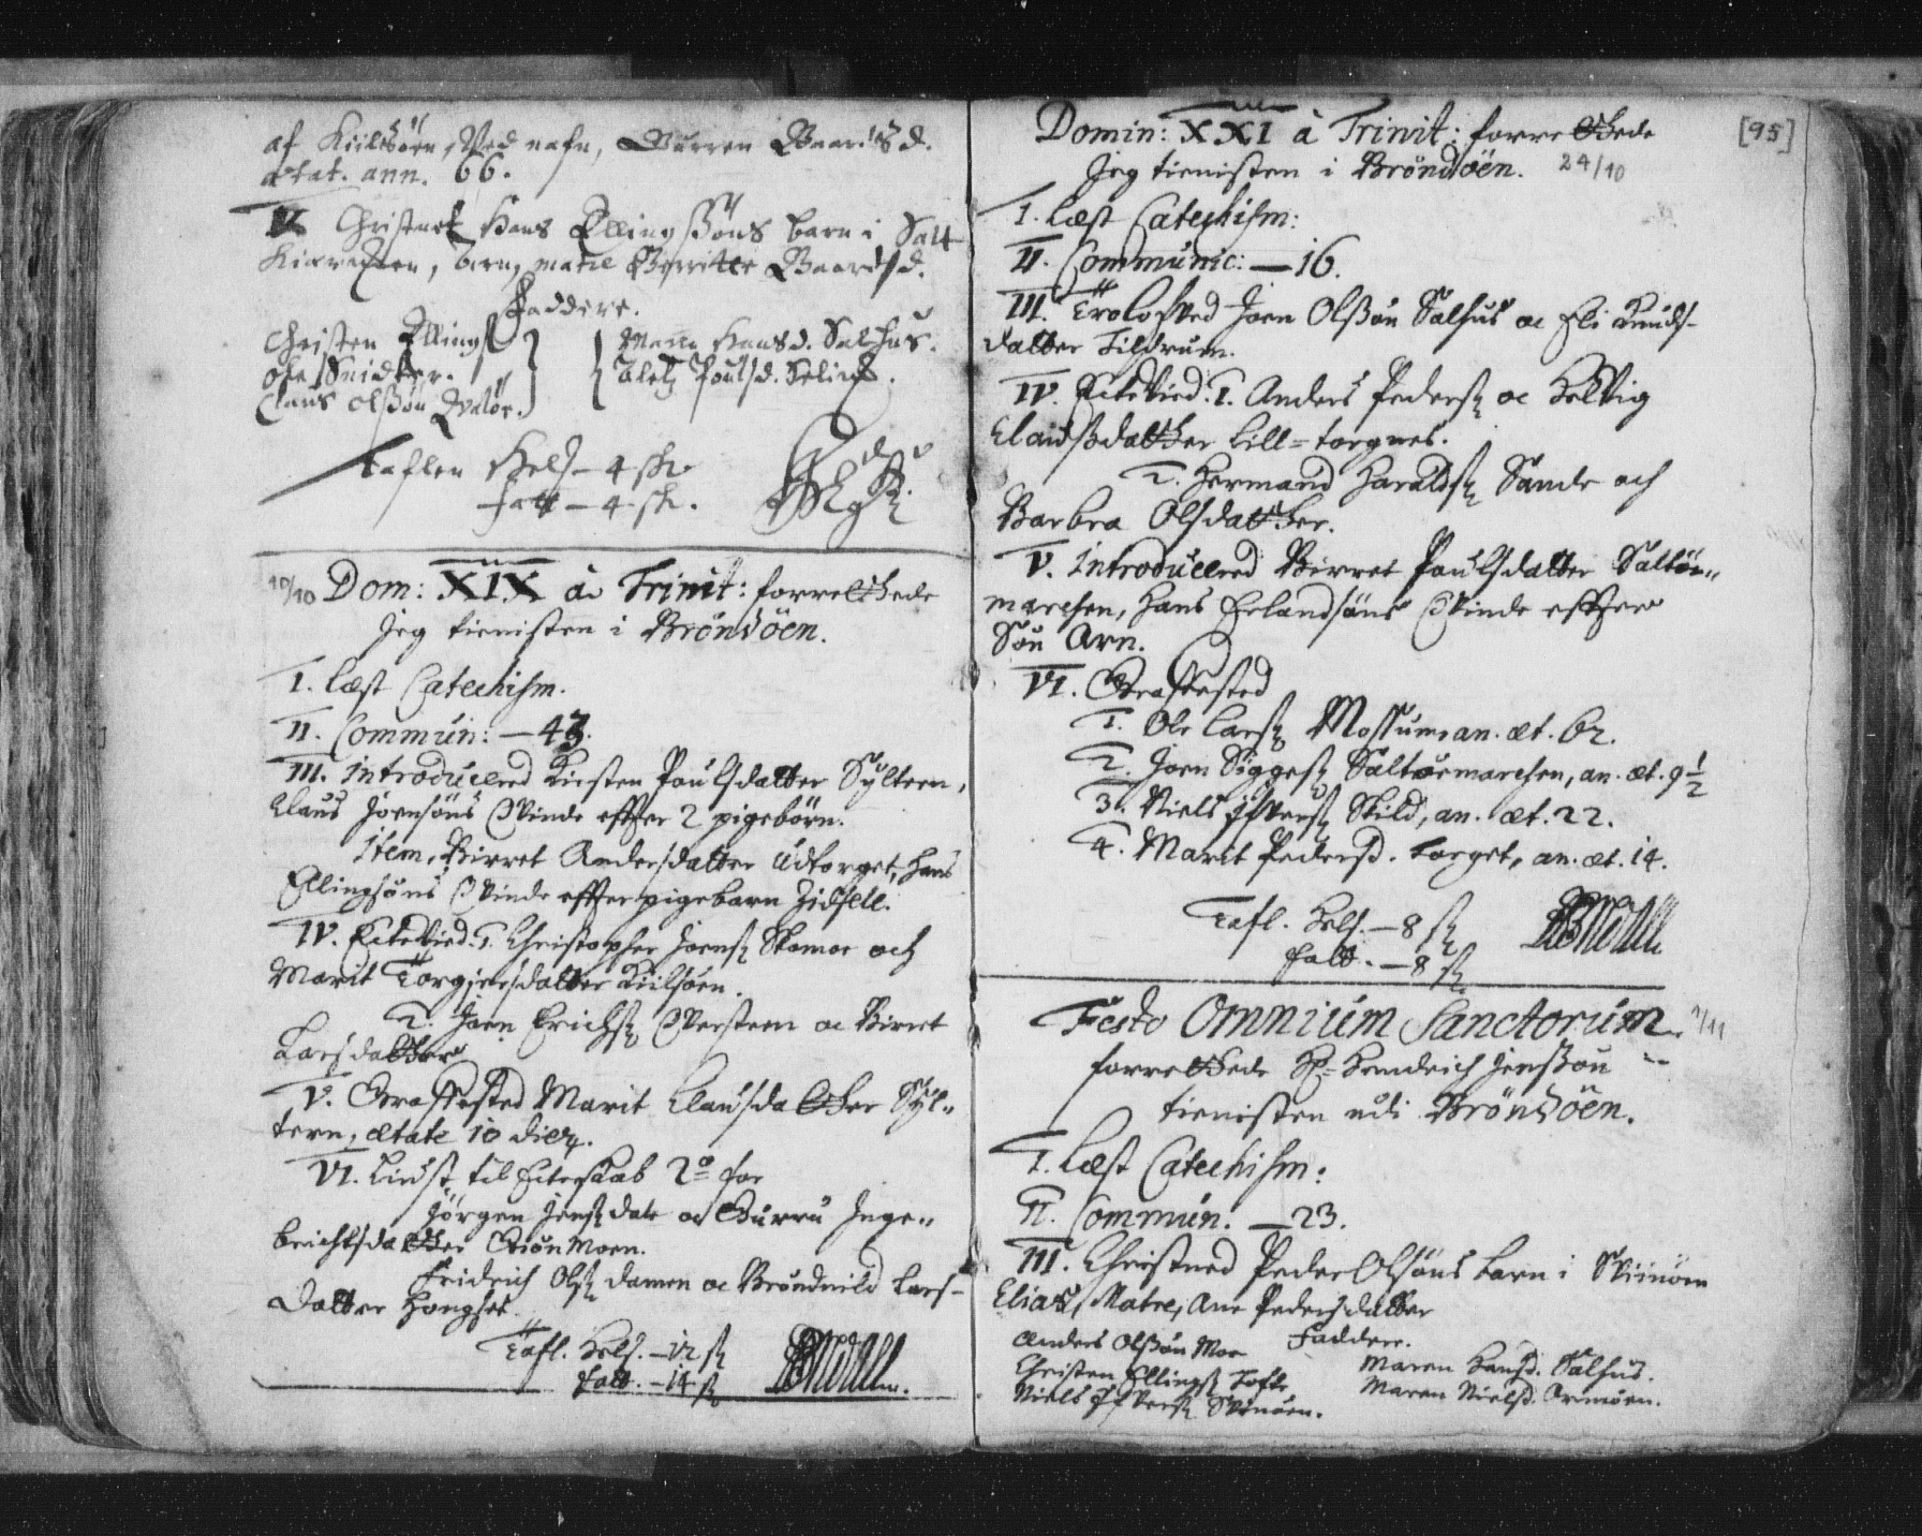 af Kiilsöen, Ved nafn, Gurren Baardsd.
ætat. ann. 66.
V. Christnet Hans Ellingsøns barn i Salt
barn, matre Birritte Baardsd.
Faddere.
Christen Ellings
Ole Snidker.
Claus Olsøn
Maren Hansd. Salhus.
Aletz Poulsd.
Taflen Hels. – 4 sk
fatt – 4 sk.
10/10 Dom: XIX à Trinit: forrettede
Jeg tienisten i Brönöen.
I. læst Catechism.
II. Commun: – 43.
III. introducered Kirsten Poulsdatter Sylteren,
Claus Joensöns Qvinde effter 2 pigebörn.
item, Birret Andersdatter Udtorget, Hans
Ellingsöns Qvinde effter pigebarn Zidsele.
IV. Ectevied. 1. Christopher Joens. Skomoe och
Marit Torgiersdatter Kiilsöen.
2. Joen Erichs. oc Birret
Larsdatter
V. Graffested Marit Clausdatter Syl-
tern, ætate 10 dier.
VI. Liust til Ecteskab 2o for
Jörgen Jens. dale oc Gurru Inge-
brichtsdatter Grönmoen.
Fridrich Ols. damen oc Bröndnild Lars-
datter Hongset.
Tafl. Hels. – 12 sk
fatt. – 14 sk
[95]
Domin: XXI à Trinit: forrettede
Jeg tienisten i Brönöen. 24/10
I. læst Catechism:
II. Communic: – 16.
III. Troloved Joen Olsøn Salhus oc Eli Knuds-
datter Tildrum.
IV. Ectevied. 1. Anders Peders. oc Helvig
Claudsdatter Lill-torgnes.
2. Hermand Haralds. Sande och
Barbra Olsdatter.
V. introducered Birret Poulsdatter Saltör-
marchen, Hans Erlandsöns Qvinde effter
Sön Arn.
VI. Graffested
1. Ole Lars. Mossum an. æt. 62.
2. Joen Sigges. Saltöermarchen, an. æt. 9 1/2
3. Niels Ifvers. Skild, an. æt. 22.
4. Marit Pedersd. torget, an. æt. 14.
Tafl. Hels. – 8 sk
fatt. – 8 sk.
Festo Omnium Sanctorum. 1/11
forrettede Hr. Hendrich Jensøn
tienisten udi Brönöen.
I. læst Catechism:
II. Commun. – 23.
III. Christned Peder Olsöns barn i
Elias, Matre, Ane Pedersdatter
Faddere.
Anders Olsøn Moe
Christen Ellings. Tofte
Niels Ifvers.
Maren Hansd. Salhus.
Maren Nielsd.